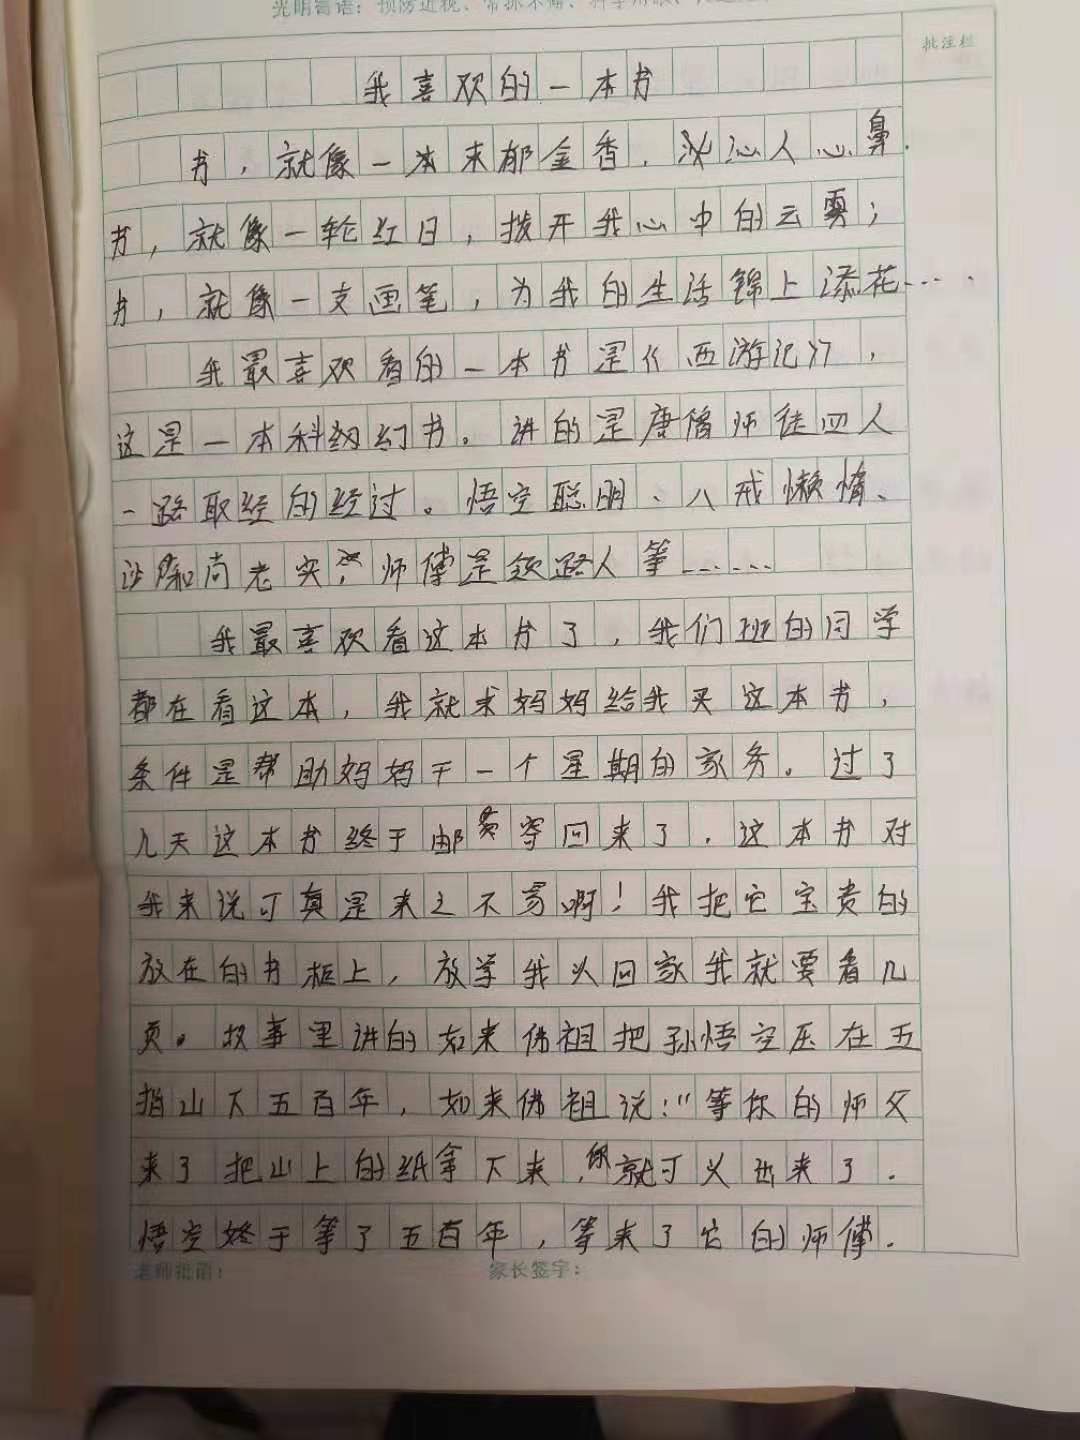 我喜欢的一本书
批注栏
书，就像一本来郁金香，沁人心鼻.
书，就像一轮红日，拨开我心中的云雾；
书，就像一支画笔，为我的生活锦上添花…．
我最喜欢看的一本书是《西游记》，
这是一本科幻书。讲的是唐僧师徒四人
一路取经的经过。悟空聪明、八戒懒惰、
沙和尚老实，师傅是领路人等……
我最喜欢看这本书了，我们班的同学
都在看这本，我就求妈妈给我买这本书，
条件是帮助妈妈干一个星期的家务。过了
几天这本书终于邮寄回来了．这本书对
我来说可真是来之不易啊！我把它宝贵的
放在的书柜上，放学我以回家我就要看几
页。故事里讲的如来佛祖把孙悟空压在五
指山下五百年，如来佛祖说："等你的师父
来了把山上的纸拿下来，你就可以出来了．
悟空终于等了五百年，等来了它的师傅．
老师批语：
家长签字：